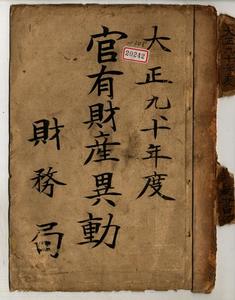 大正九十年度
29242
官有財産異動
財務局